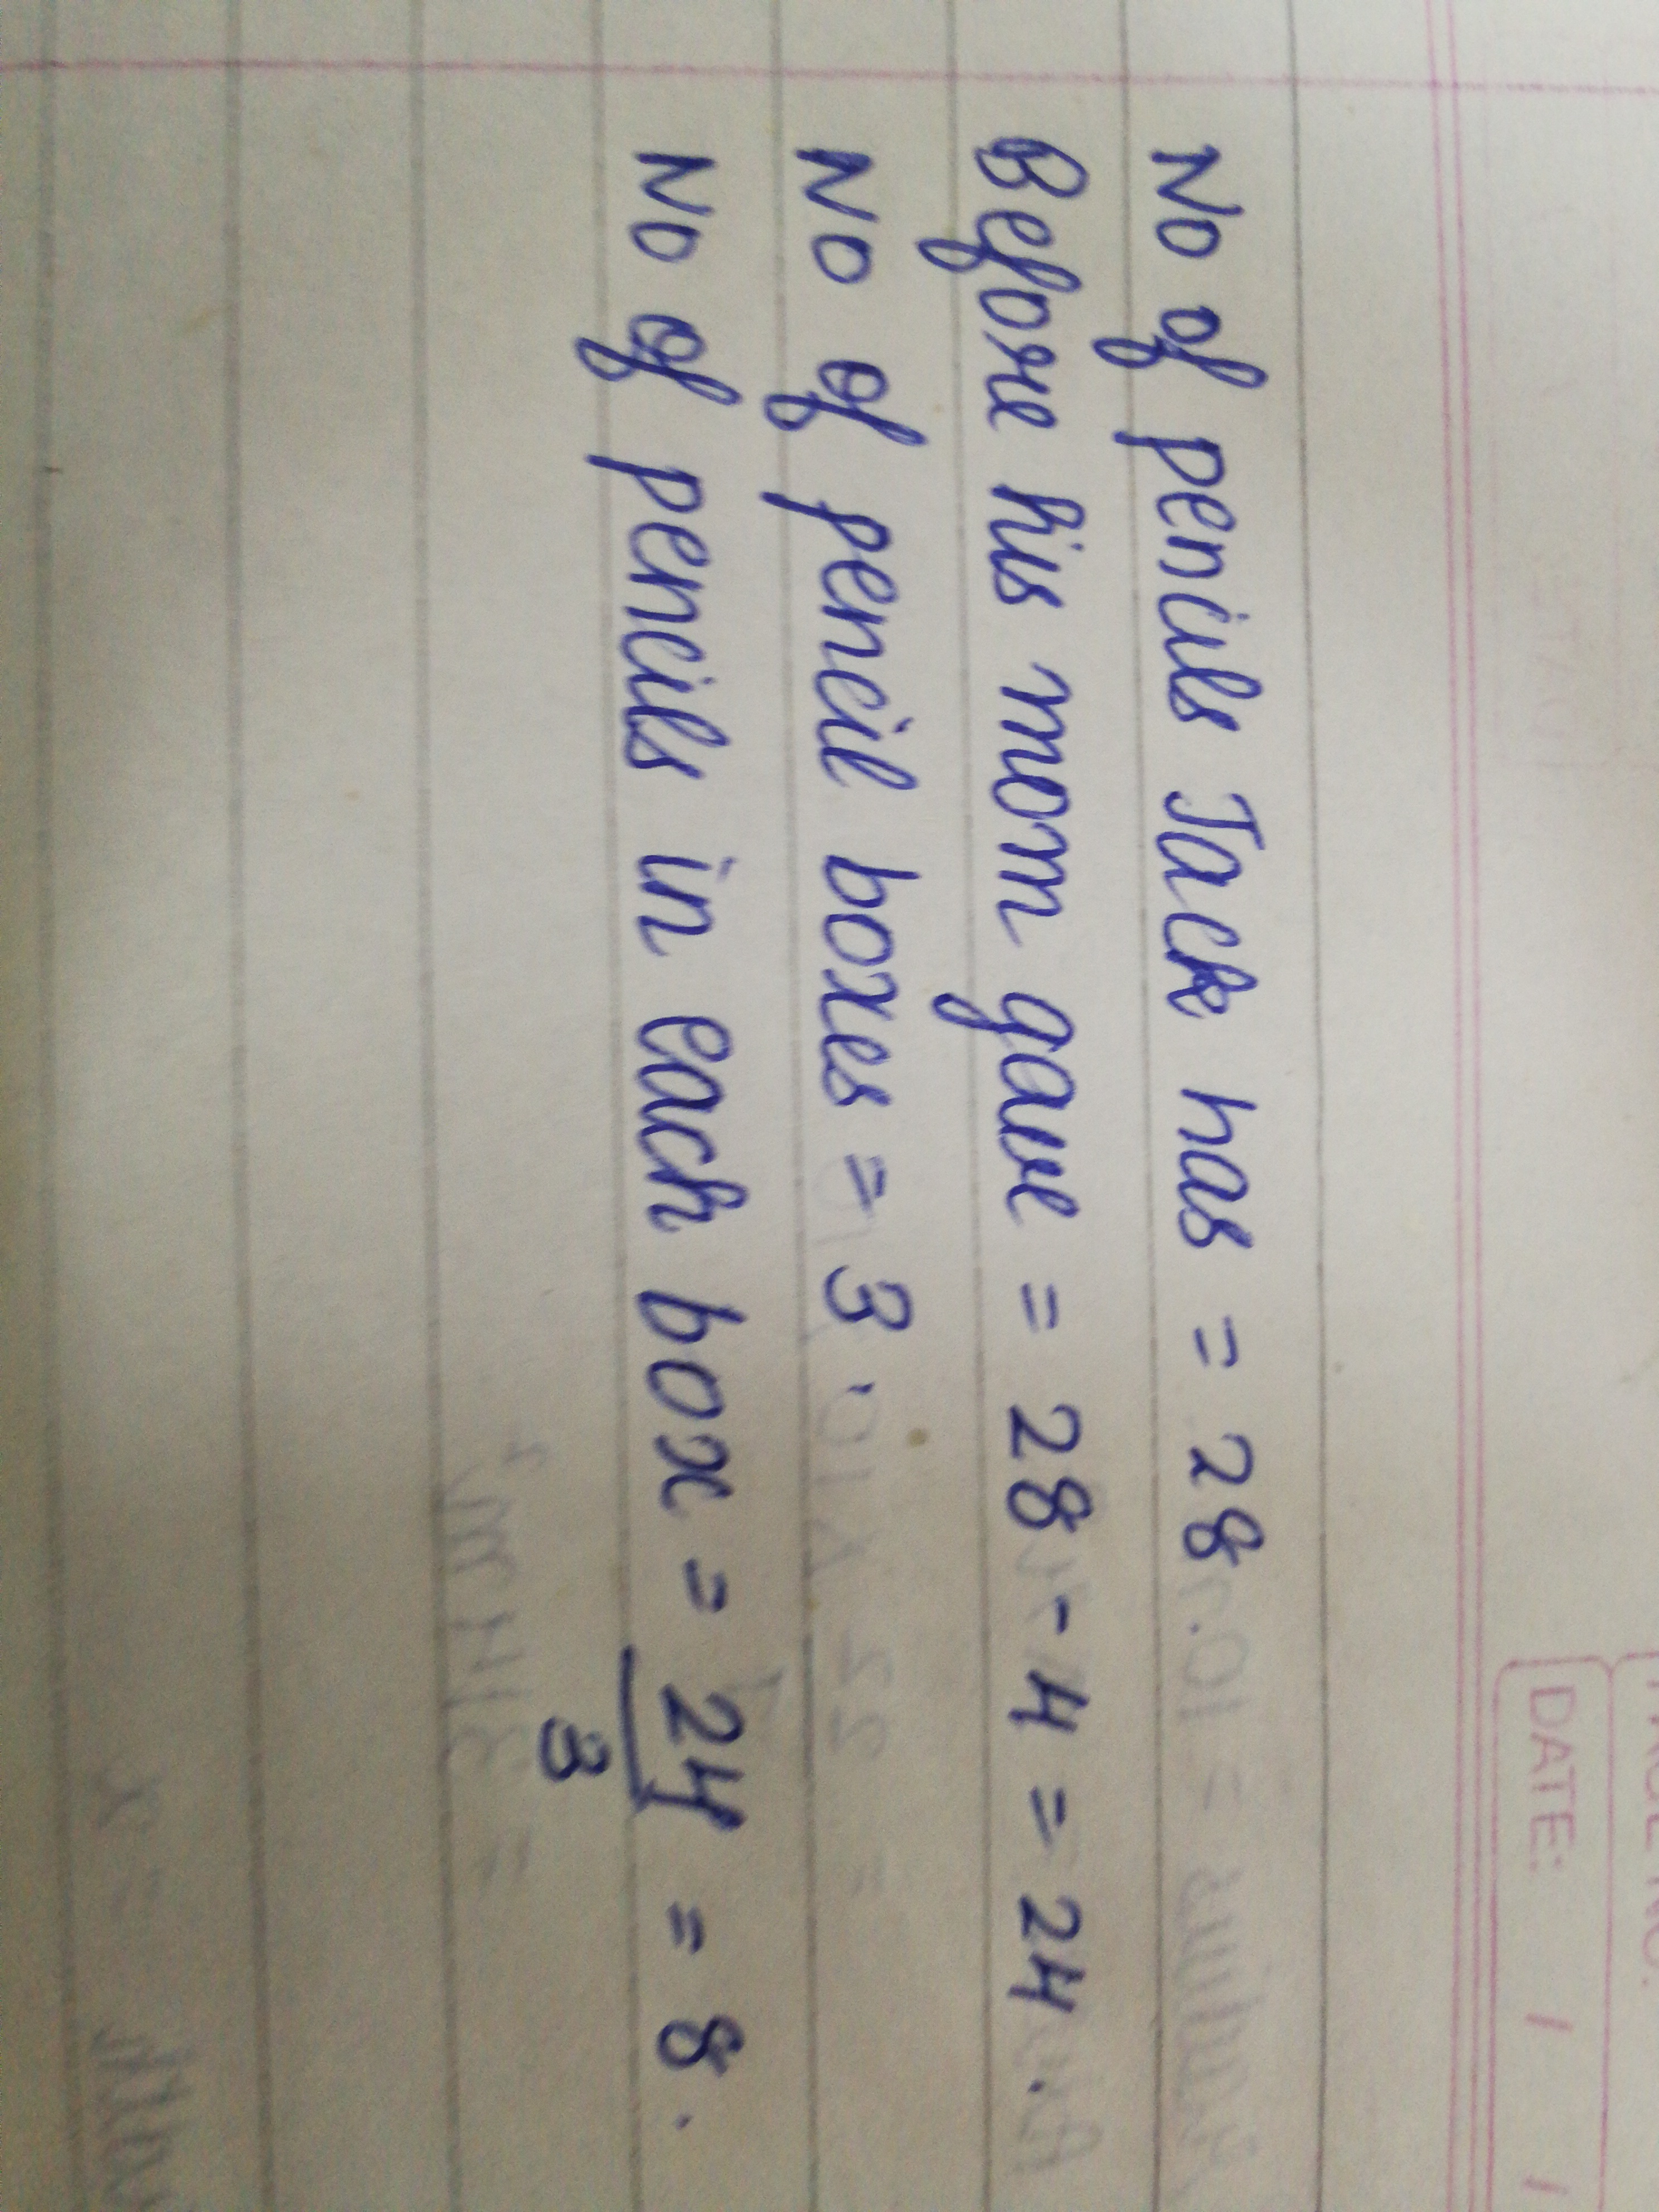 PAGE NO.
DATE: / /
No of pencils Jack has = 28
Before his mom gave = 28 - 4 = 24.
No of pencil boxes = 3.
No of pencils in each box = 24/3 = 8.